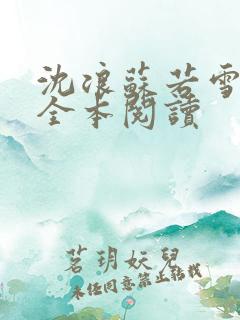 沈浪蘇若雪
全本閱讀
茗玥妖兒
未经同意禁止转载